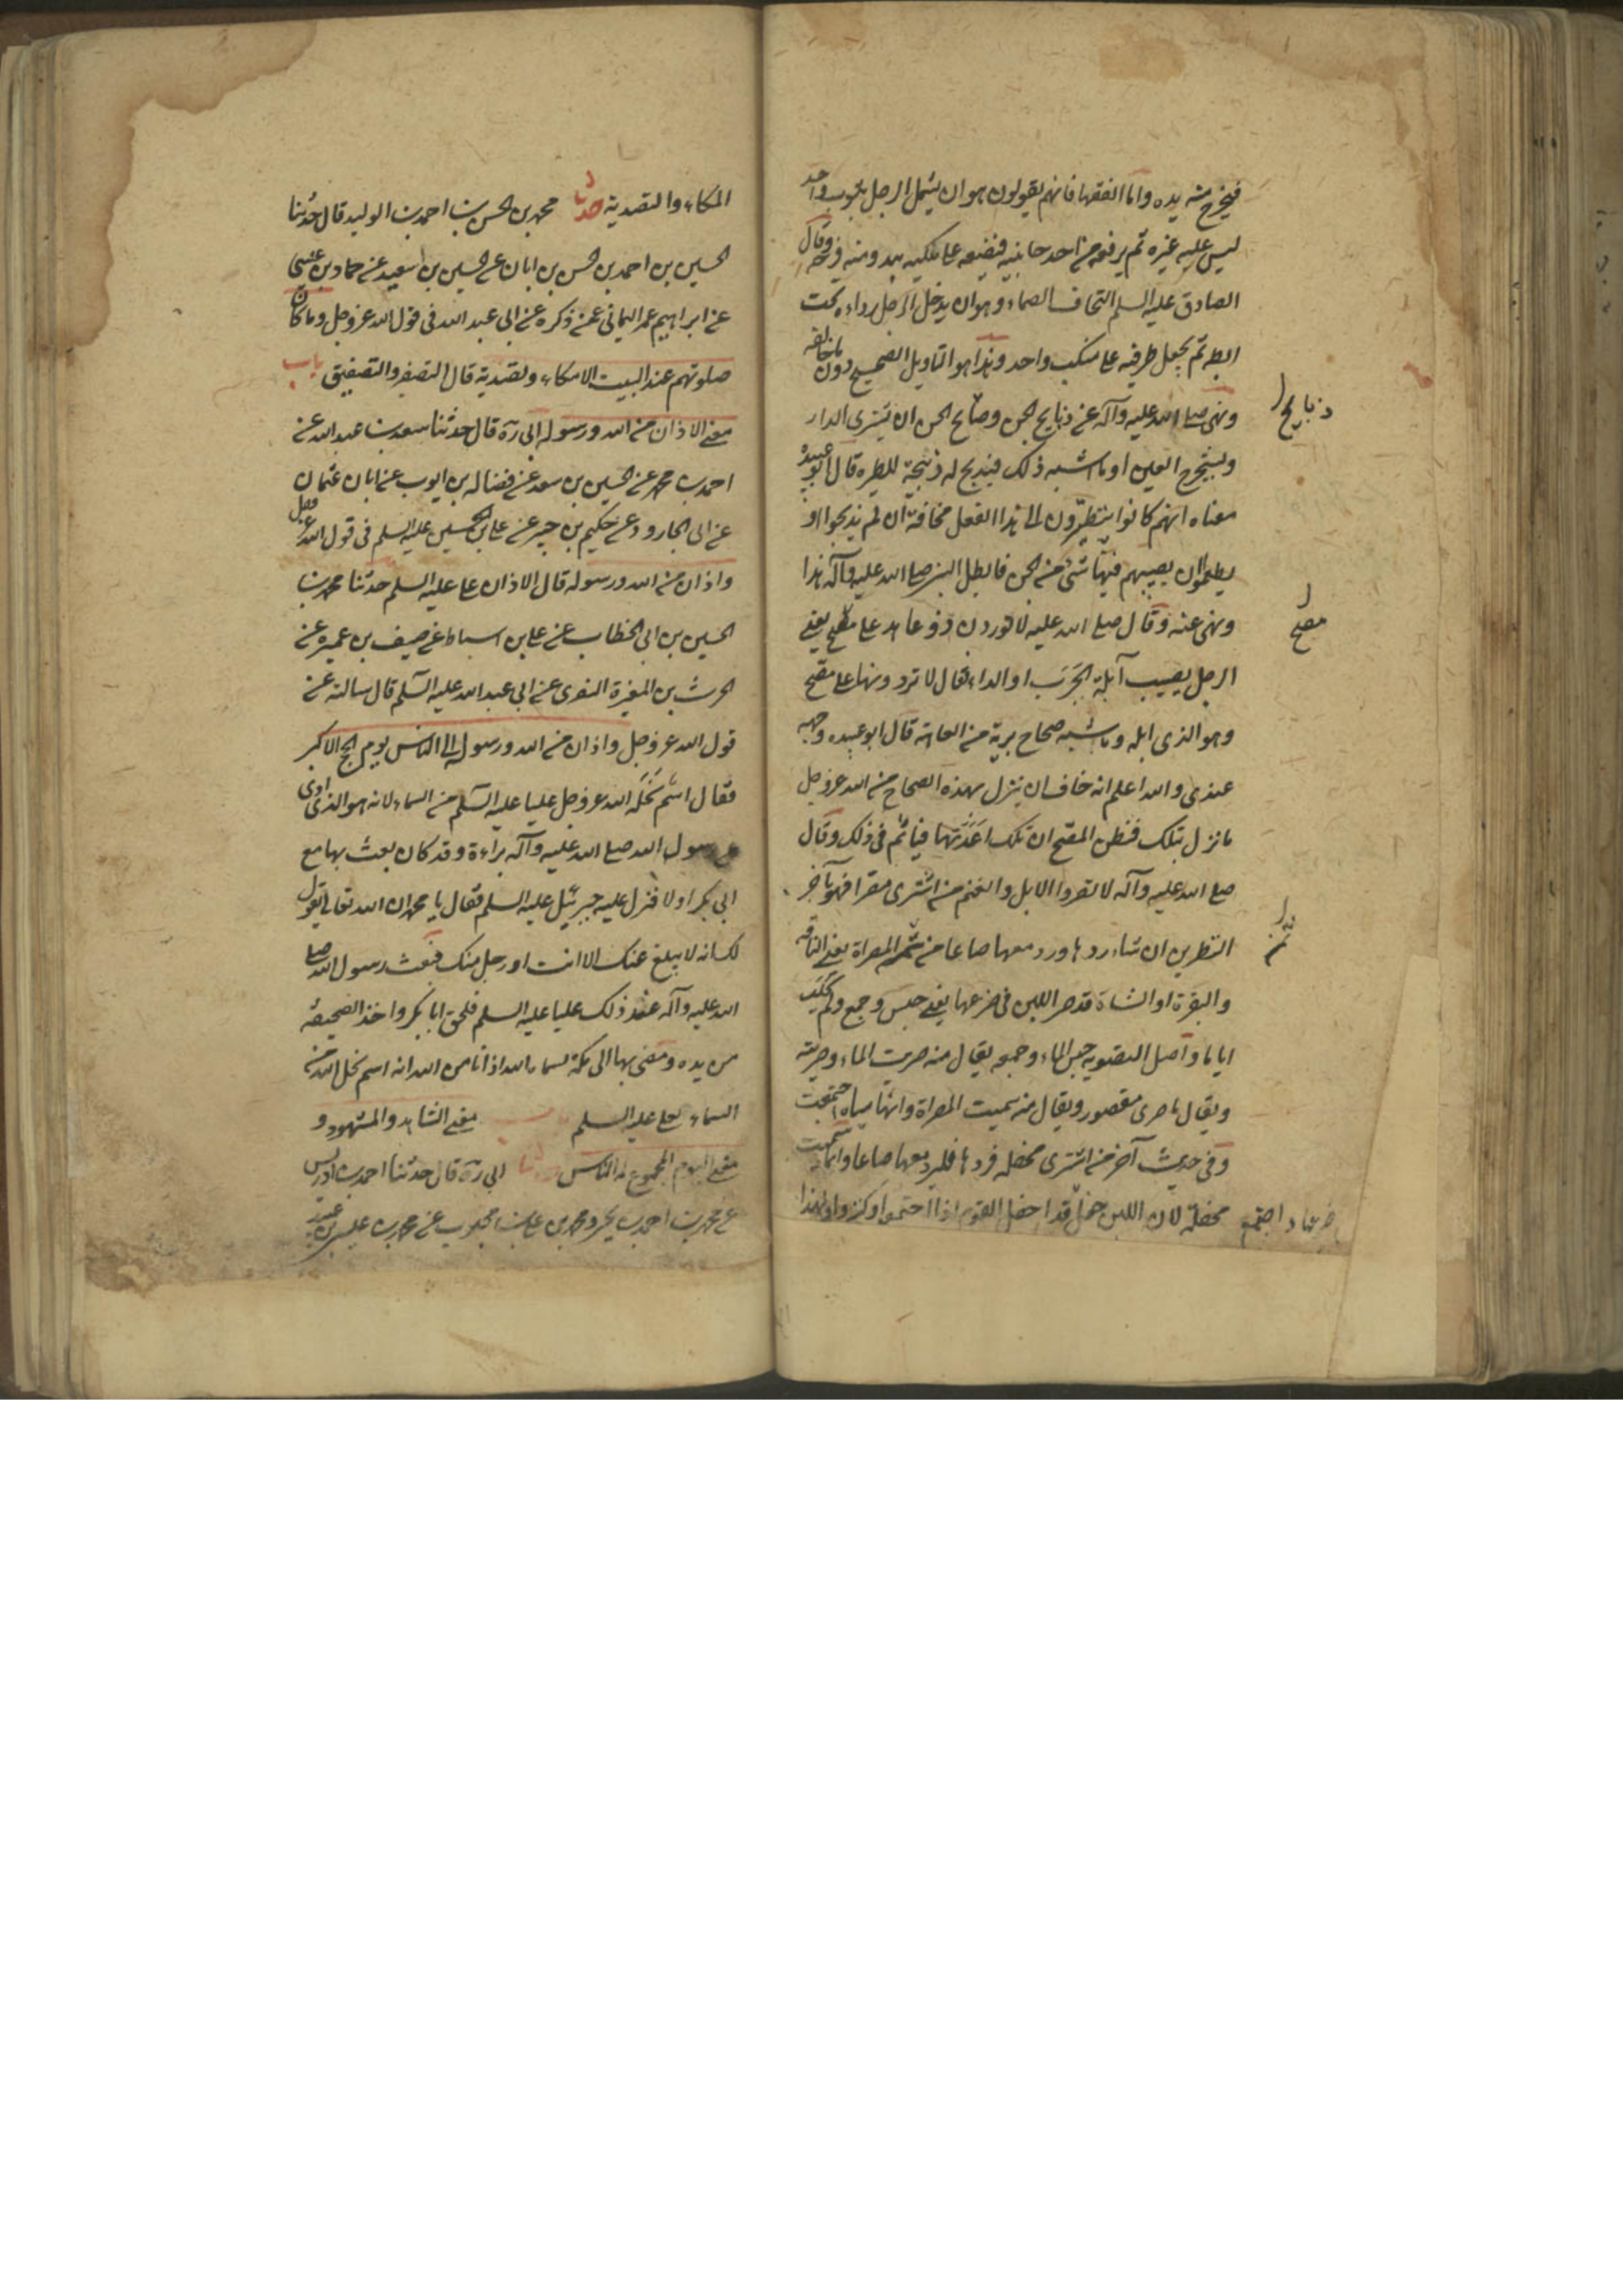 فيخرج منه يده واما الفقها فانهم يقولون هو ان يشتمل الرجل بثوب واحد
ليس عليه غيره ثم يرفعه من احد جانبيه فيضعه على منكبيه يبدو منه فرجه وقال
الصادق عليه السلم التحاف الصماء وهو ان يدخل الرجل رداءه تحت
ابطه ثم يجعل طرفيه على منكب واحد وهذا هو التاويل الصحيح دون ما خالفه
ونهى صلى الله عليه وآله عن ذبايح الجن وذبايح الجن ان يشترى الدار
ويستخرج العين او ما اشبه ذلك فيذبح له ذبيحة للطيرة قال ابو عبيدة
معناه انهم كانوا يتطيرون الى هذا الفعل مخافة ان لم يذبحوا او
يطعموا ان يصيبهم فيها شئ من الجن فابطل النبي صلى الله عليه وآله هذا
ونهى عنه وقال صلى الله عليه لا توردن ذو عاهة على مصح يعنى
الرجل يصيب ابله الجَرَب او الداء فقال لا تردونها على مصح
وهو الذى ابله وما شبه صحاح برية من العاهة قال ابو عبيده وجهه
عندى والله اعلم انه خاف ان ينزل بهذه الصحاح من الله عز وجل
ما نزل بتلك فيظن المصح ان تلك اعدتها فياثم فى ذلك وقال
صلى الله عليه وآله لا تصروا الابل والغنم من اشترى مصراة فهو بآخر
النظرين ان شاء ردها ورد معها صاعا من تمر المصراة يعنى الناقة
والبقرة او الشاة قد صر اللبن فى ضرعها يعنى حبس وجمع ولم يحلب
اياما واصل التصرية حبس الماء وجمعه يقال منه صريت الماء وصريته
ويقال ماء صرى مقصور ويقال منه سميت المصراة وانها مياه اجتمعت
وفى حديث آخر من اشترى محفلة فردها فليرد معها صاعا وانما سميت
محفلة لان اللبن حفل قد احفل القوم اذا اجتمعوا وكثروا ولهذا
ذبايح
مصح
تمر
ضرعها واجتمع
المكاء والتصدية حدثنا محمد بن الحسن بن احمد بن الوليد قال حدثنا
الحسين بن احمد بن الحسن بن ابان عن الحسين بن سعيد عن حماد بن عيسى
عن ابراهيم عمر اليمانى عمن ذكره عن ابى عبد الله فى قول الله عز وجل وما كان
صلوتهم عند البيت الا مكاء وتصدية قال التصفير والتصفيق باب
معنى الاذان من الله ورسوله ابى ره قال حدثنا سعد بن عبد الله عن
احمد بن محمد عن الحسين بن سعد عن فضاله بن ايوب عن ابان عثمان
عن ابى الجارود عن حكيم بن جبير عن على بن الحسين عليه السلم فى قول الله عز وجل
واذان من الله ورسوله قال الاذان على عليه السلم حدثنا محمد بن
الحسين بن ابى الخطاب عن على بن اسباط عن سيف بن عميره عن
الحرث بن المغيرة النصرى عن ابى عبد الله عليه السلم قال سالته عن
قول الله عز وجل واذان من الله ورسوله الى الناس يوم الحج الاكبر
فقال اسم نَحَلَه الله عز وجل عليا عليه السلم من السماء لانه هو الذى ادى
عن رسول الله صلى الله عليه وآله براءة وقد كان بعث بها مع
ابى بكر اولا فنزل عليه جبرئيل عليه السلم فقال يا محمد ان الله تعالى يقول
لك انه لا يبلغ عنك الا انت او رجل منك فبعث رسول الله صلى
الله عليه وآله عند ذلك عليا عليه السلم فلحق ابا بكر واخذ الصحيفة
من يده ومضى بها الى مكة فسماه الله اذانا من الله انه اسم نحل الله من
السماء لعلى عليه السلم معنى الشاهد والمشهود و
معنى اليوم المجموع له الناس ابى ره قال حدثنا احمد بن ادريس
عن محمد بن احمد بن يحيى ومحمد بن على بن محبوب عن محمد بن عيسى بن عبيد